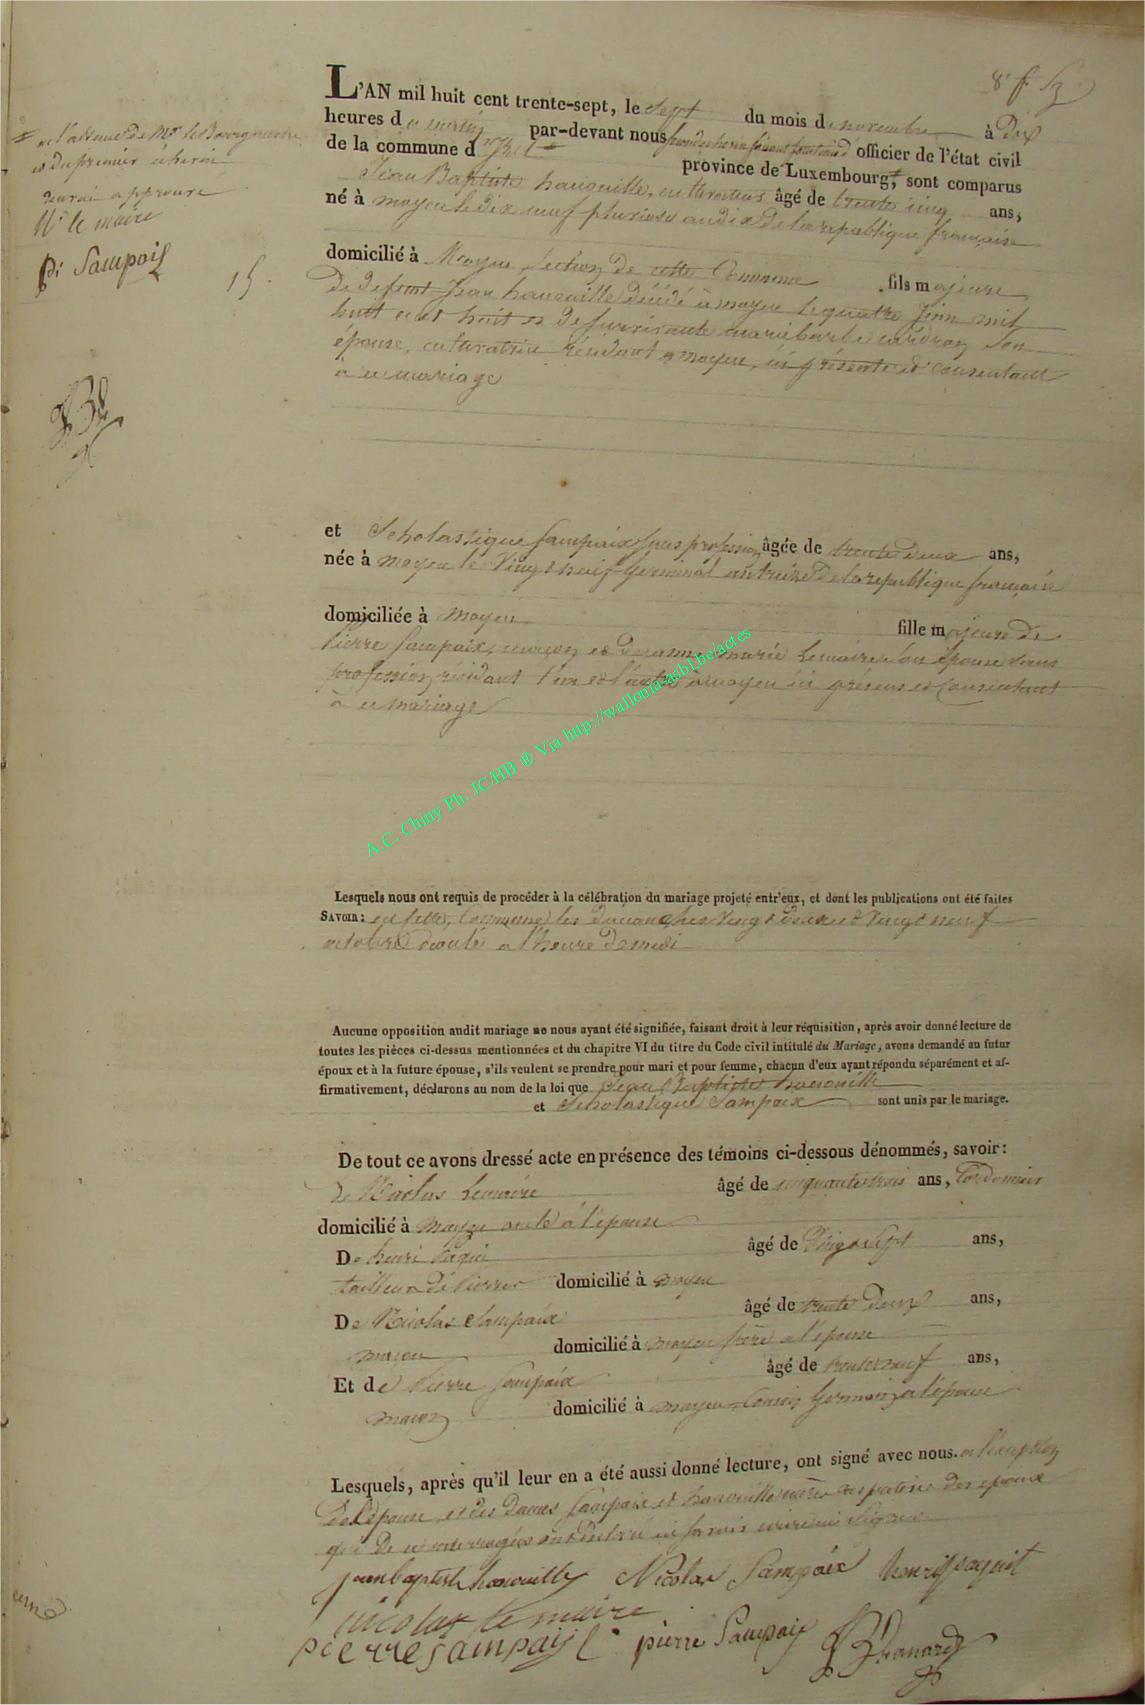 8e f
L'AN mil huit cent trente-sept, le sept du mois de novembre à dix
heures du matin par-devant nous officier de l'état civil
de la commune d province de Luxembourg, sont comparus
Jean Baptiste hanouille, cultivateur âgé de trente cinq ans,
né à moyen le dix neuf pluviose an dix de la republique française
domicilié à Moyen Section de cette Commune fils majeure
De Defunt Jean hanouille décédé à moyen le quatre Juin mil
huit cent huit et De survivante marie barbe son
épouse, cultivatrice résidant a moyen, ici présente et consentant
à ce mariage
et Scholastique Sampaix sans profession âgée de trente deux ans,
née à moyen le Vingt neuf Germinal an treize De la republique française
domiciliée à moyen fille majeure de
Pierre Sampaix, maçon et de anne marie Lemaire son épouse sans
profession résidant l'un et l'autre à moyen ici présens et Consentant
à ce mariage
Lesquels nous ont requis de procéder à la célébration du mariage projeté entr'eux, et dont les publications ont été faites
SAVOIR: en cette Commune les Dimanches vingt deux et vingt neuf
octobre écoulé a l'heure de midi
Aucune opposition audit mariage ne nous ayant été signifiée, faisant droit à leur réquisition, après avoir donné lecture de
toutes les pièces ci-dessus mentionnées et du chapitre VI du titre du Code civil intitulé du Mariage, avons demandé au futur
époux et à la future épouse, s'ils veulent se prendre pour mari et pour femme, chacun d'eux ayant répondu séparément et af-
firmativement, déclarons au nom de la loi que Jean Baptiste hanouille
et Scholastique Sampaix sont unis par le mariage.
De tout ce avons dressé acte en présence des témoins ci-dessous dénommés, savoir:
De Nicolas Lemaire âgé de cinquante trois ans, Cordonnier
domicilié à moyen oncle à l'épouse
De henri âgé de Vingt sept ans,
tailleur de Pierres domicilié à moyen
De Nicolas Sampaix âgé de trente deux ans,
maçon domicilié à moyen frère a l'épouse
Et de Pierre Sampaix âgé de trente neuf ans,
maçon domicilié à moyen Cousin Germain a l'épouse
Lesquels, après qu'il leur en a été aussi donné lecture, ont signé avec nous. a l'exception
De l'épouse, et des Dames Sampaix et hanouille mères respectives des époux
qui De ce interrogées ont déclaré ne savoir écrire ni signer
jean baptiste hanouille Nicolas Sampaix henri
nicolas Lemaire
pierre sampaix pierre Sampaix
en l'absence de Mr le Bourgmestre
et du premier échevin
renvoi approuvé
Nas le maire
Pi Sampaix
15.
A.C. Chiny Ph. JCAHB ® Via http://wallonia-asbl.be/actes